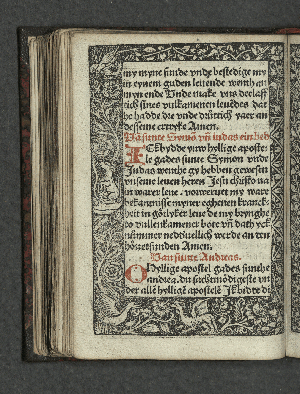 my myne sunde vnde bestedige my
in eynem guden leuende wenth an
myn ende Vnde make vns deelaf
tich sines vulkamenen leuēdes dat
he hadde die vnde druttich yaer an
desseme ertryke Amen.
Va sunte Symō vñ iudas ein beb
ICk bydde yuw hyllige aposte
le gades sunte Symon vnde
Judas wenthe gy hebben gewesen
vnseme leuen heren Jesu christo na
in warer leue. vorweruet my ware
bekantnisse myner eghenen kranck
heit in gotlyker leue de my brynghe
to vullenkamener bote vñ dath yck
nūmmer nedduellich werde an den
houetsunden Amen.
Van sunte Andreas.
O Hyllige apostel gades sunthe
andrea. du sachtmōdigeste vn
der allē hylligē apostelē Jk bidde di